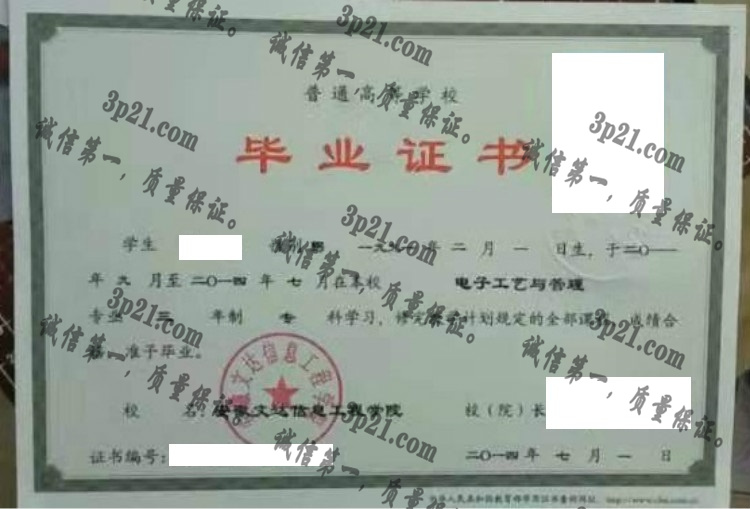 普通高等学校
毕业证书
学生 性别男 一九九一年 二 月 一 日生，于二〇一一
年 九 月至 二〇一四 年 七 月在本校 电子工艺与管理
专业 三 年制 专 科学习，修完教学计划规定的全部课程，成绩合
格，准予毕业。
校 名：安徽文达信息工程学院 校（院）长
证书编号： 二〇一四 年 七 月 一 日
中华人民共和国教育部学历证书查询网址：http://www.chsi.com.cn
安徽文达信息工程学院
3p21.com
诚信第一，质量保证。
3p21.com
诚信第一，质量保证。
3p21.com
诚信第一，质量保证。
3p21.com
诚信第一，质量保证。
3p21.com
诚信第一，质量保证。
3p21.com
诚信第一，质量保证。
3p21.com
诚信第一，质量保证。